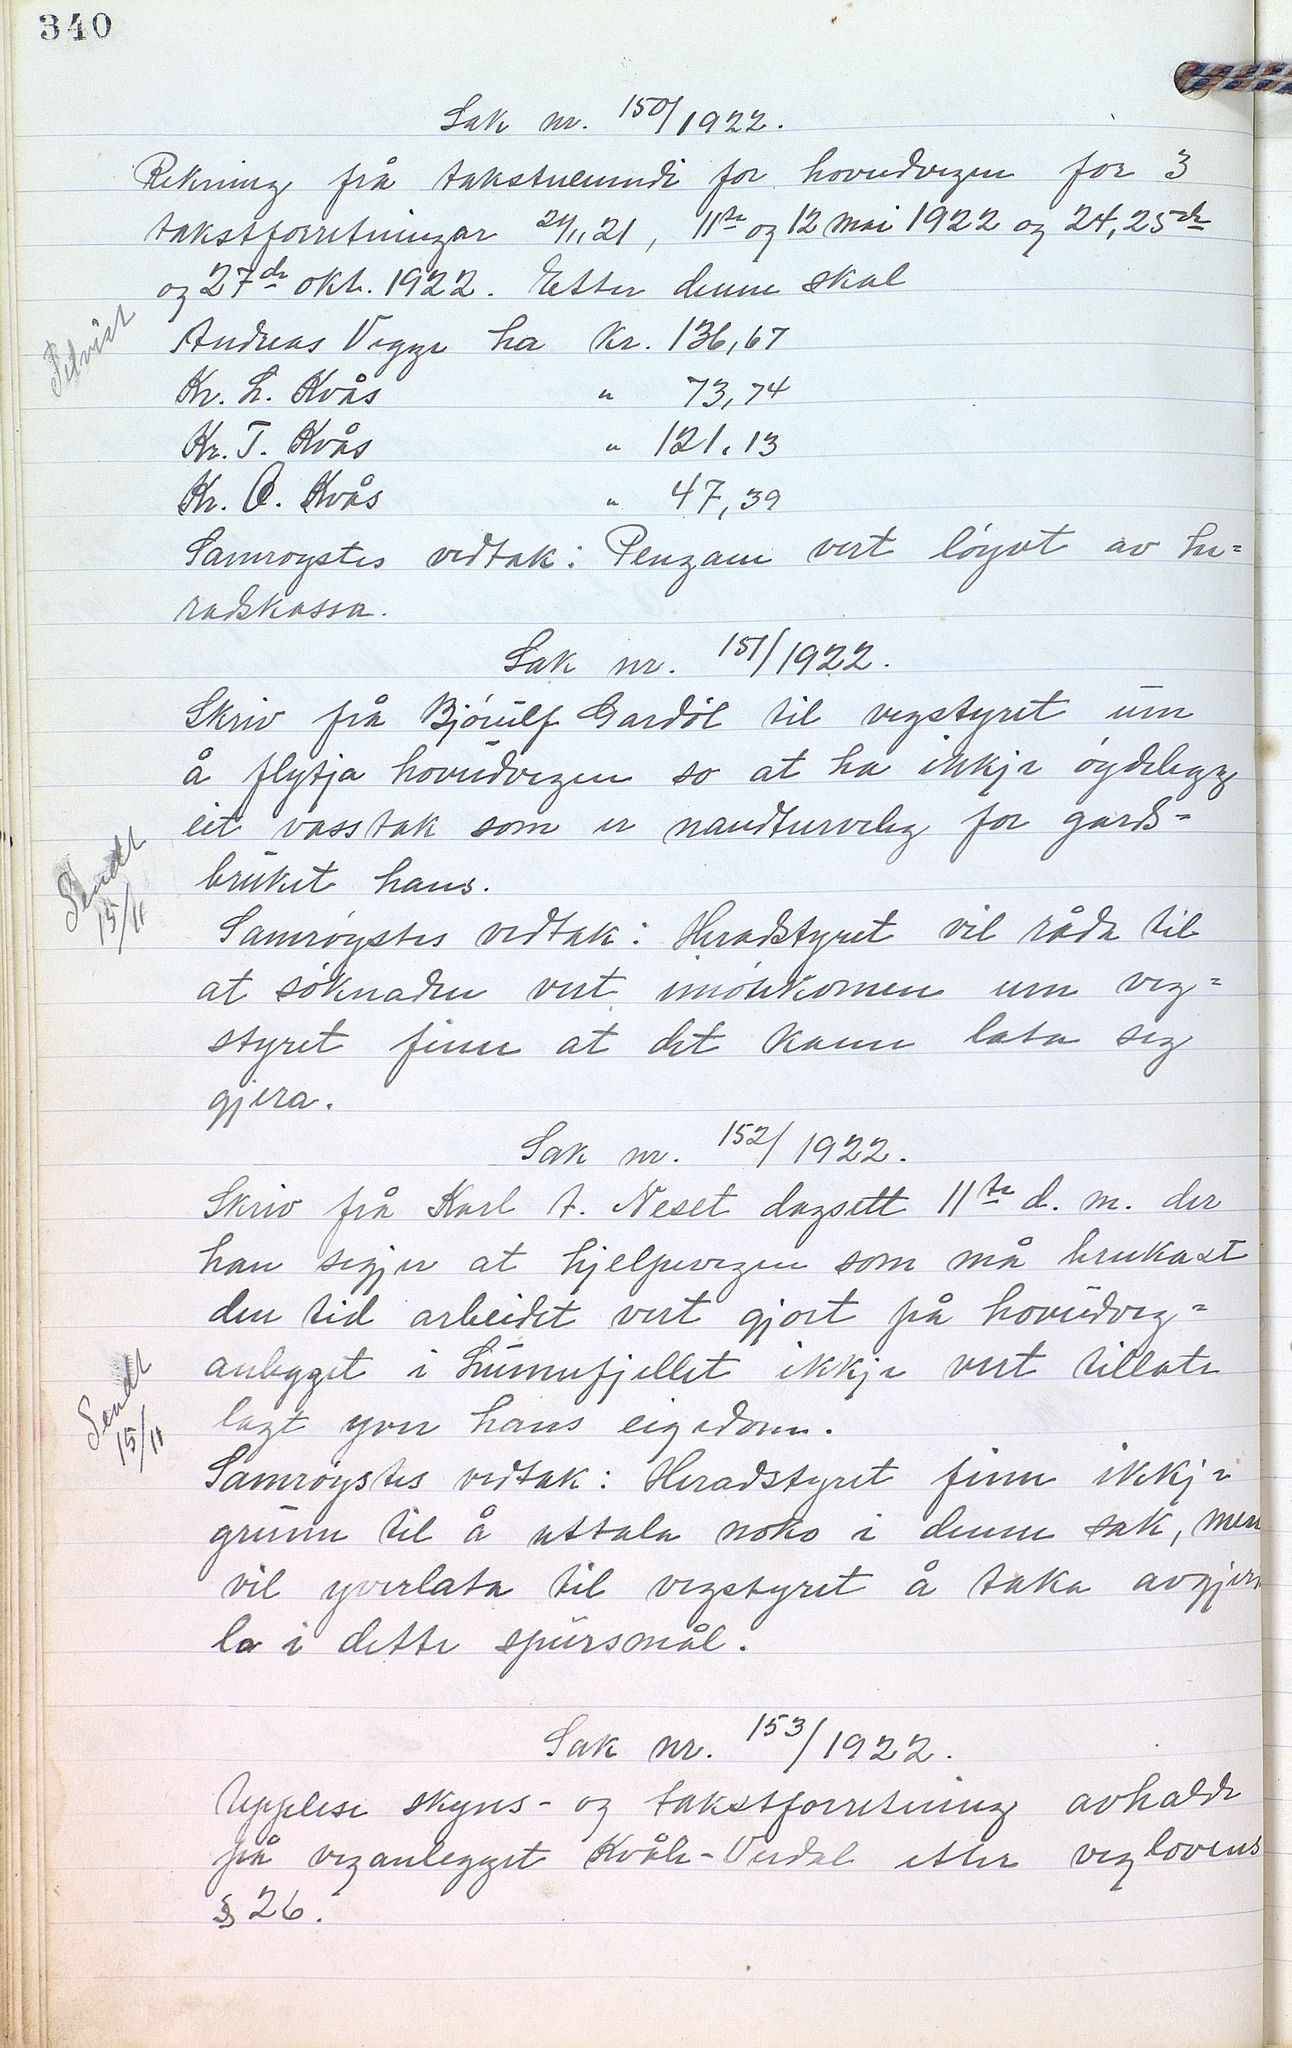 340
Sak nr. 150/1922.
Rekning frå takstnemndi for hovudvegen for 3
takstforretningar 21/11 21, 11te og 12 mai 1922 og 24, 25de
og 27de okt. 1922. Etter denne skal
Andreas Vegge ha kr. 136,67
Kr. L. Kvås " 73,74
Kr. T. Kvås " 121,13
Kr. O. Kvås " 47,39
Samrøystes vedtak: Pengane vert løyvt av he=
radskassa.
Sak nr. 151/1922.
Skriv frå Bjørulf Gardöl til vegstyret um
å flytja hovudvegen so at ha ikkje öydelegg
eit vasstak som er naudturveleg for gards=
bruket hans.
Sendt
15/11
Samrøystes vedtak: Heradstyret vil råda til
at söknaden vert imötekomen um veg=
styret finn at det kann lata seg
gjera.
Sak nr. 152/1922.
Skriv frå Karl A. Neset dagsett 11te d. m. der
han segjer at hjelpevegen som må brukast
den tid arbeidet vert gjort på hovudveg=
anlegget i Lunnefjellet ikkje vert tillate
lagt yver hans eigedom.
Sendt
15/11
Samrøystes vedtak: Heradstyret finn ikkje
grunn til å uttala noko i denne sak, men
vil yverlata til vegstyret å taka avgjer
la i dette spursmål.
Sak nr. 153/1922.
Upplese skyns- og takstforretning avhalde
på veganlegget Kvåle-Verdal etter veglovens
§ 26.